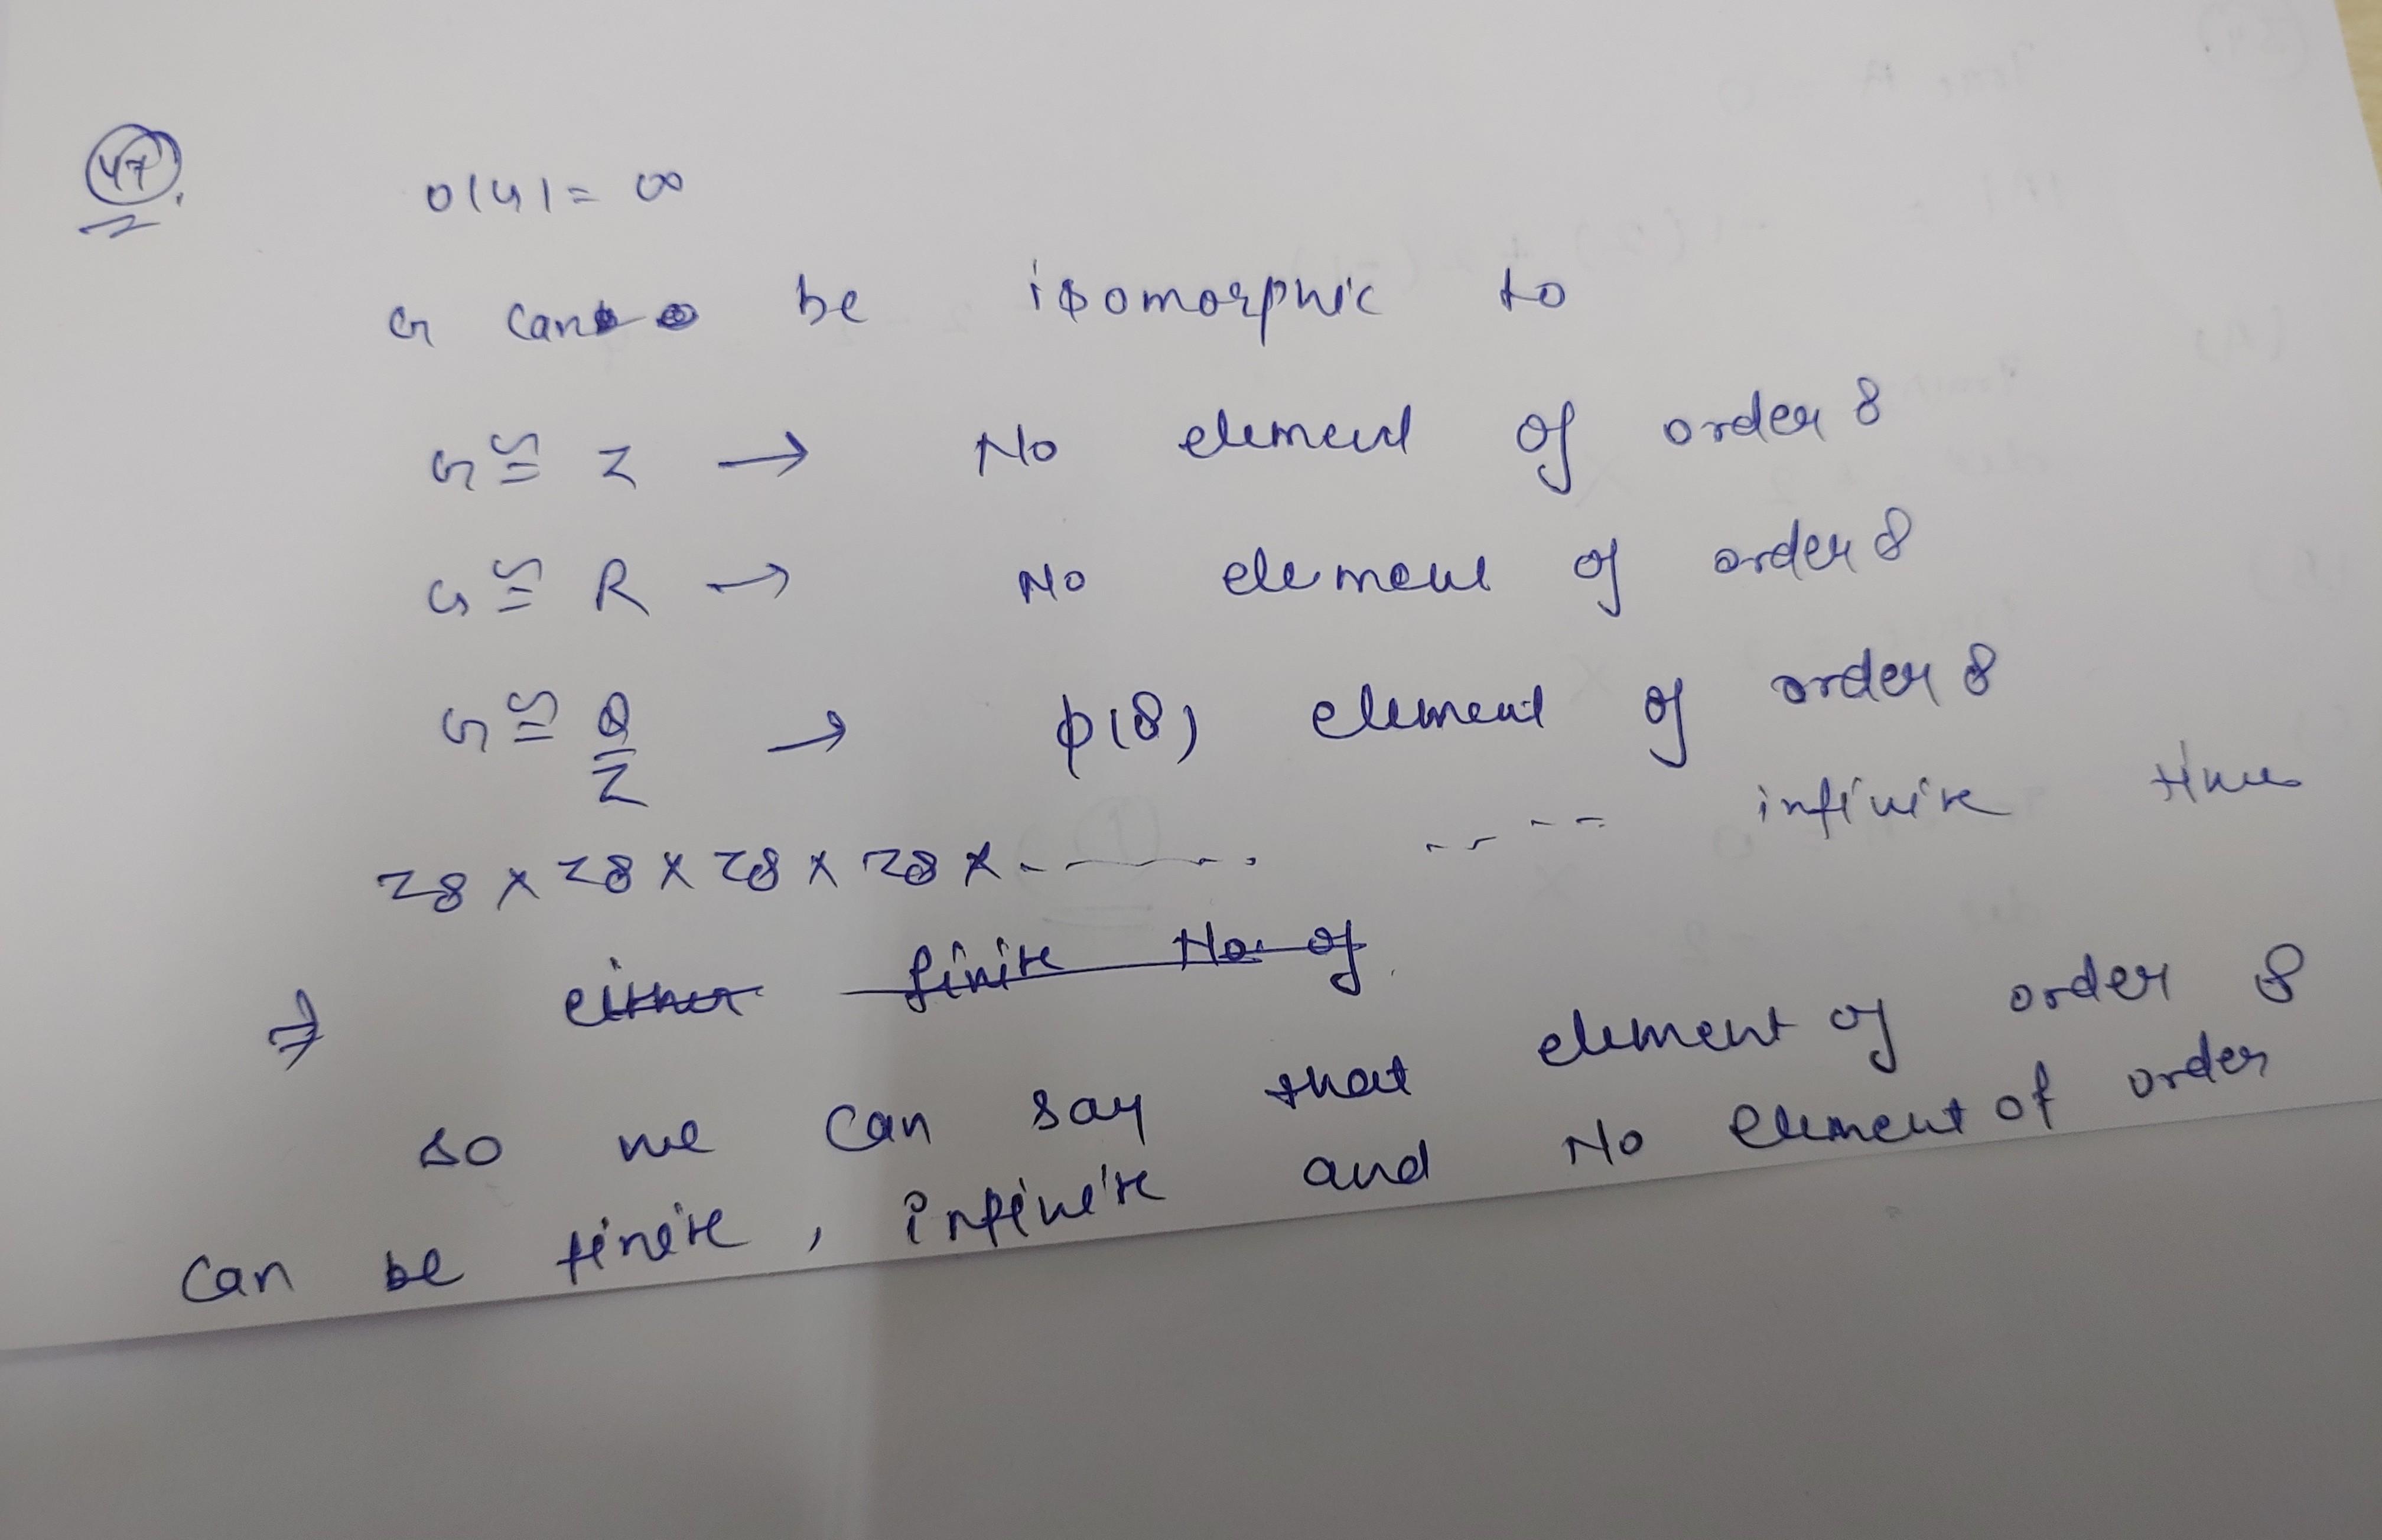 47.
O(G) = ∞
G can be isomorphic to
G ≅ Z → No element of order 8
G ≅ R → No element of order 8
G ≅ Q/Z → φ(8) element of order 8
Z8 × Z8 × Z8 × Z8 × - - - - - - - infinite times
⇒ either finite No. of
so we can say that element of order 8
can be finite, infinite and No element of order